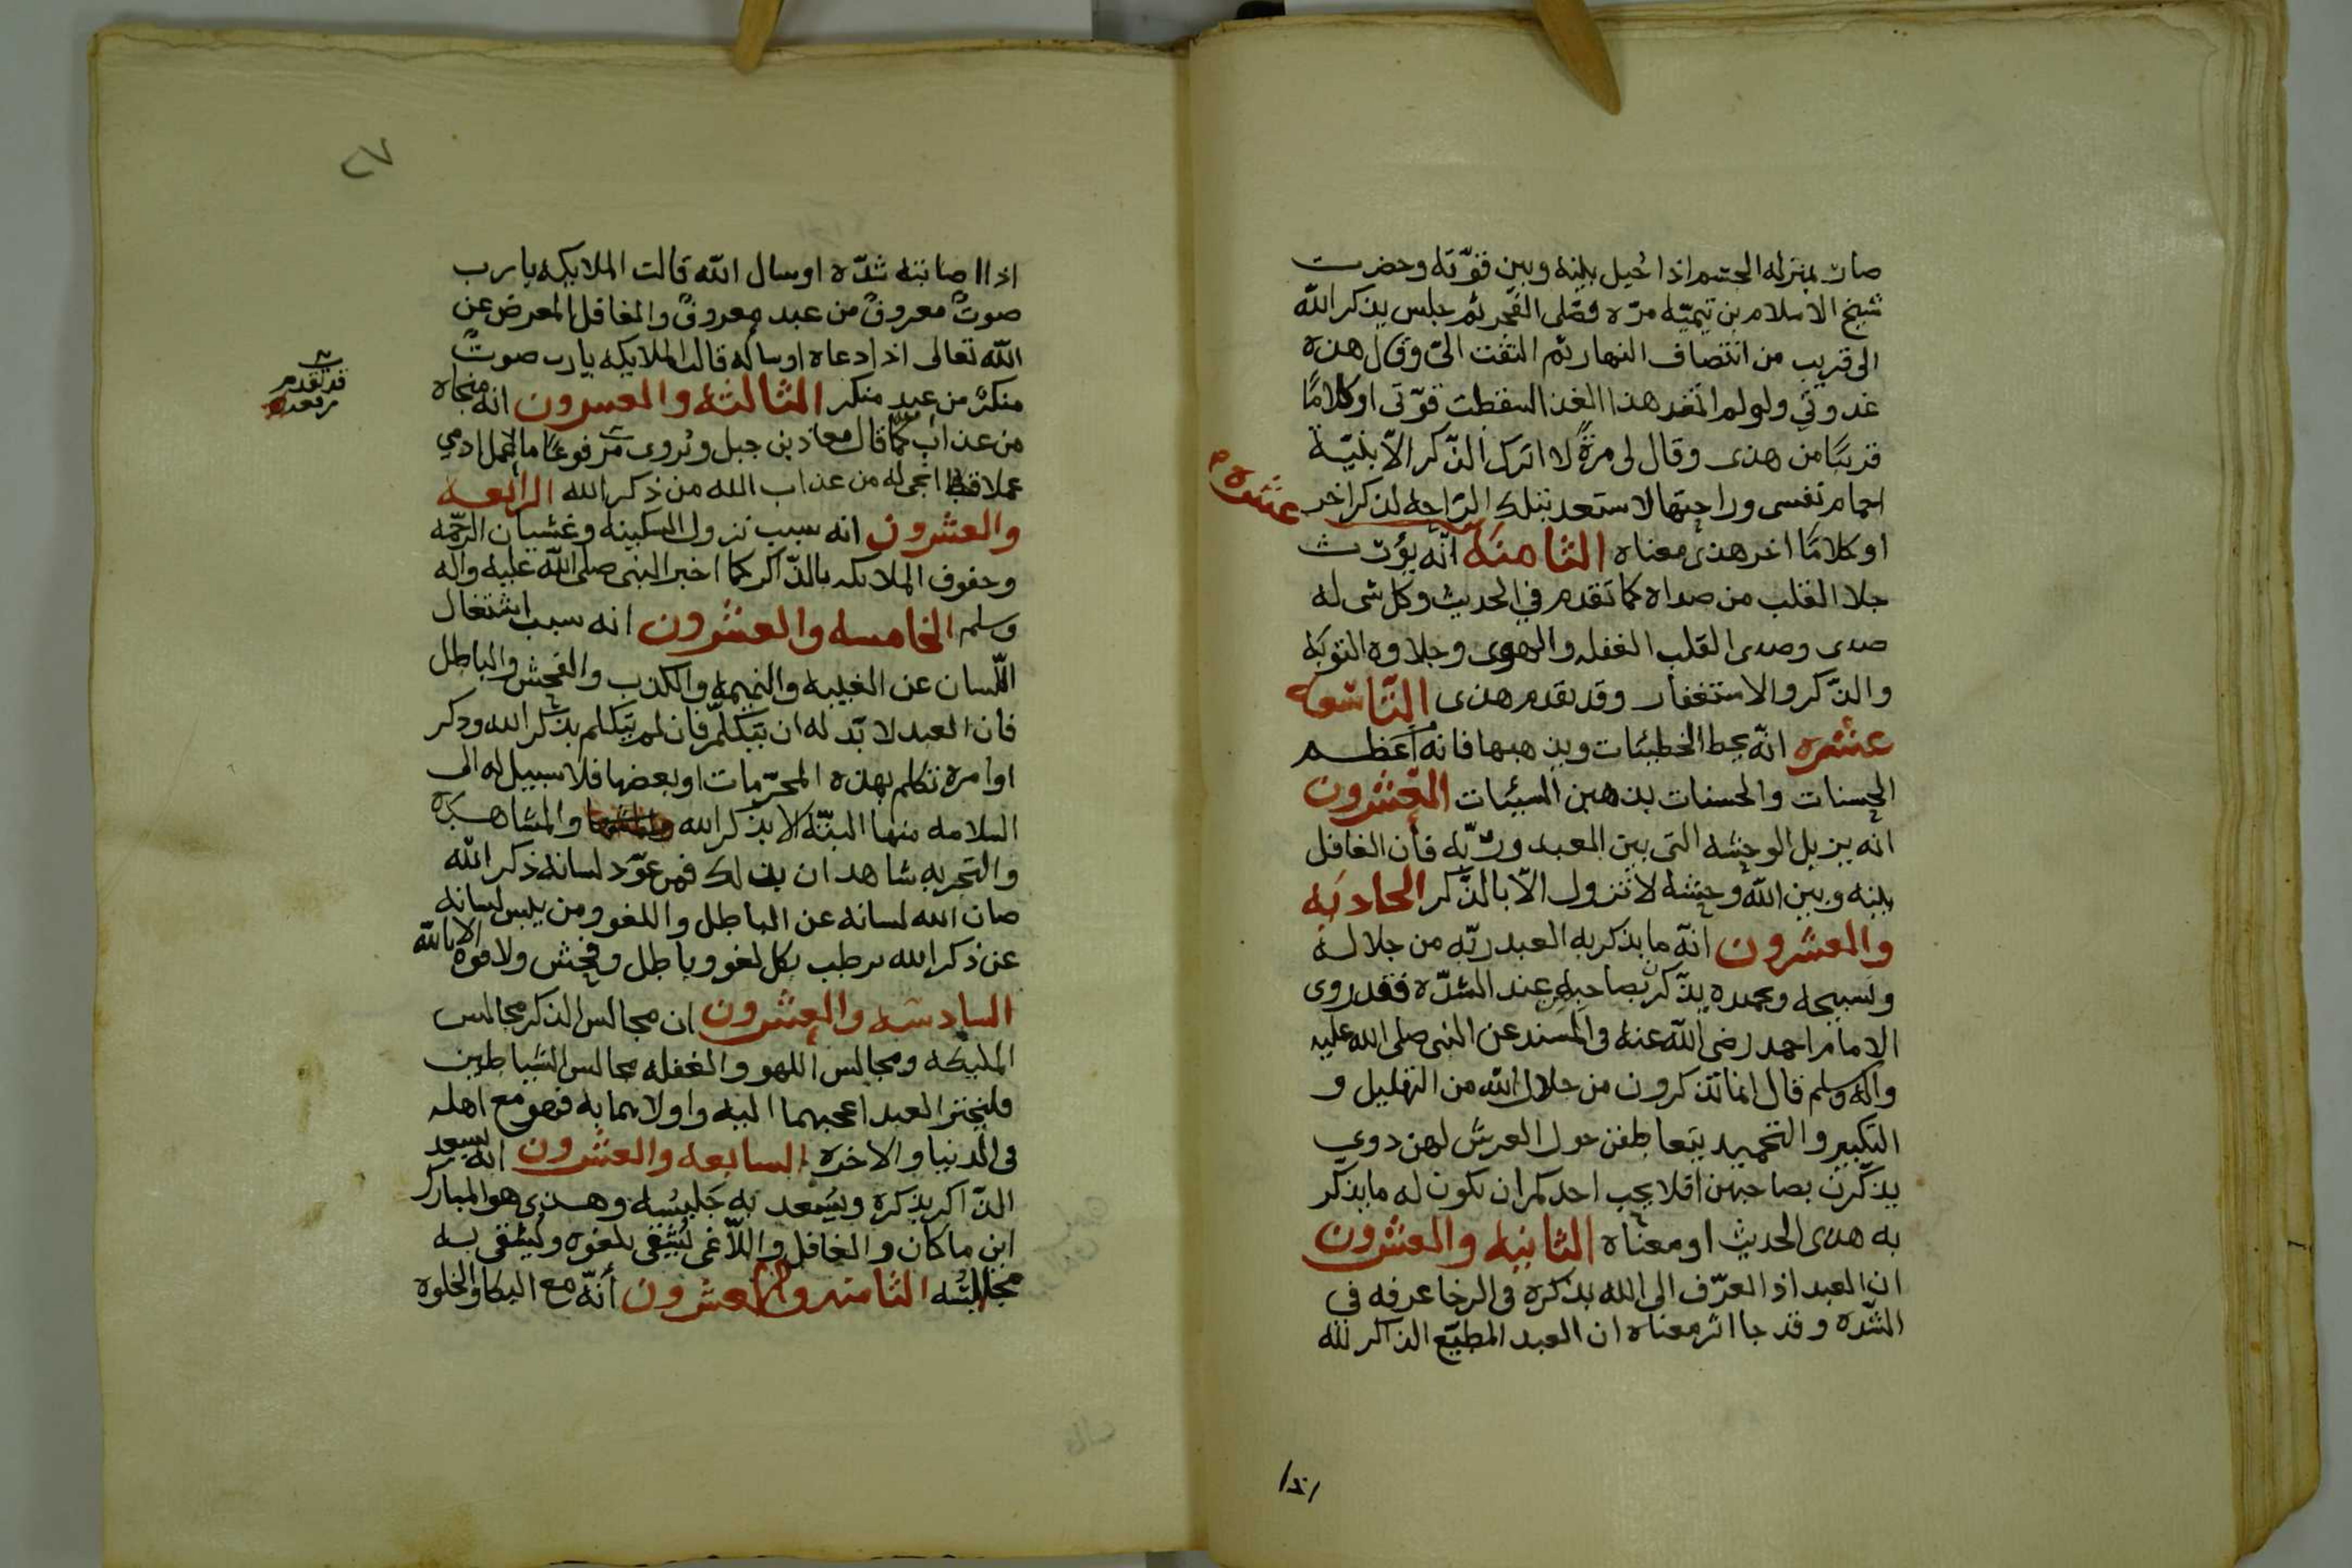 صار بمنزله الجسم اذا حيل بينه وبين قوّته وحضرت
شيخ الاسلام بن تيميّه مرّه فصّلى الفجر ثم جلس يذكر الله
الى قريب من انتصاف النهار ثم التفت الىّ وقال هذه
غدوتي ولو لم اتغد هذا الغذا لسقطت قوّتى او كلامًا
قريبًا من هذى وقال لى مرّةً لا اترك الذّكر الّا بنيّة
اجمام نفسى وراحتها لاستعد بتلك الرّاحه لذكر اخر
او كلامًا اخر هذى معناه الثامنة عشره انّه يورث
جلا القلب من صداه كما تقدم في الحديث وكل شى له
صدى وصدى القلب الغفله والهوى وجلاوه التوبه
والذّكر والاستغفار وقد تقدم هذى التّاسعه
عشره انّه يحط الخطيئات ويذهبها فانه اعظم
الحسنات والحسنات يذهبن السيئات العشرون
انه يزيل الوحشه التى بين العبد وربّه فان الغافل
بينه وبين الله وحشه لا تزول الّا بالذّكر الحاديه
والعشرون انّه ما يذكر به العبد ربّه من جلاله
وتسبيحه وتحمده يذّكرن بصاحبه عند الشدّه فقد روى
الامام احمد رضى الله عنه فى المسند عن النبى صلى الله عليه
واله وسلم قال انما تذكرون من جلال الله من التهليل و
التكبير والتحميد يتعاطفن حول العرش لهن دوي
يذكّرن بصاحبهن افلا يحب احدكم ان يكون له ما يذكّر
به هذى الحديث او معناه الثانيه والعشرون
ان العبد اذا تعرّف الى الله بذكره فى الرخا عرفه في
الشدّه وقد جا اثر معناه ان العبد المطيع الذاكر لله
اذا
٢٧
اذا اصابته شدّه او سال الله قالت الملايكه يا رب
صوتٌ معروفٌ من عبد معروفٍ والغافل المعرض عن
الله تعالى اذا دعاه او ساله قالت الملايكه يا رب صوتٌ
منكرٌ من عبدٍ منكر الثالثه والعشرون انه منجاه
من عذاب كما قال معاذ بن جبل ويروى مرفوعًا ما عمل ادمي
قد تقدم
مرفعه
عملا قط انجى له من عذاب الله من ذكر الله الرابعه
والعشرون انه سبب نزول السكينه وغشيان الرحمّه
وحفوف الملائكه بالذّاكر كما اخبر النبى صلى الله عليه واله
وسلم الخامسه والعشرون انه سبب اشتغال
اللّسان عن الغيبه والنميمه والكذب والفحش والباطل
فان العبد لا بّد له ان يتكلّم فان لم يتكلم بذكر الله وذكر
اوامره تكلم بهذه المحرّمات او بعضها فلا سبيل له الى
السلامه منها البتّه الا بذكر الله والمشاهده
والتجربه شاهدان بذلك فمن عوّد لسانه ذكر الله
صان الله لسانه عن الباطل واللغو ومن يبس لسانه
عن ذكر الله ترطب بكل لغو وباطل وفحش ولا قوة الا بالله
السادسه والعشرون ان مجالس الذكر مجالس
المليكه ومجالس اللهو والغفله مجالس الشياطين
فليختر العبد اعجبهما اليه واولاهما به فهو مع اهله
فى الدنيا والاخره السابعه والعشرون انه يسعد
الذّاكر بذكره ويُسعد به جَليسُه وهذى هو المبارك
اين ما كان والغافل واللّاغى يُشقى بلغوه ويُشقى به
مجالسُه الثامنه والعشرون أنّه مع البكا والخلوه